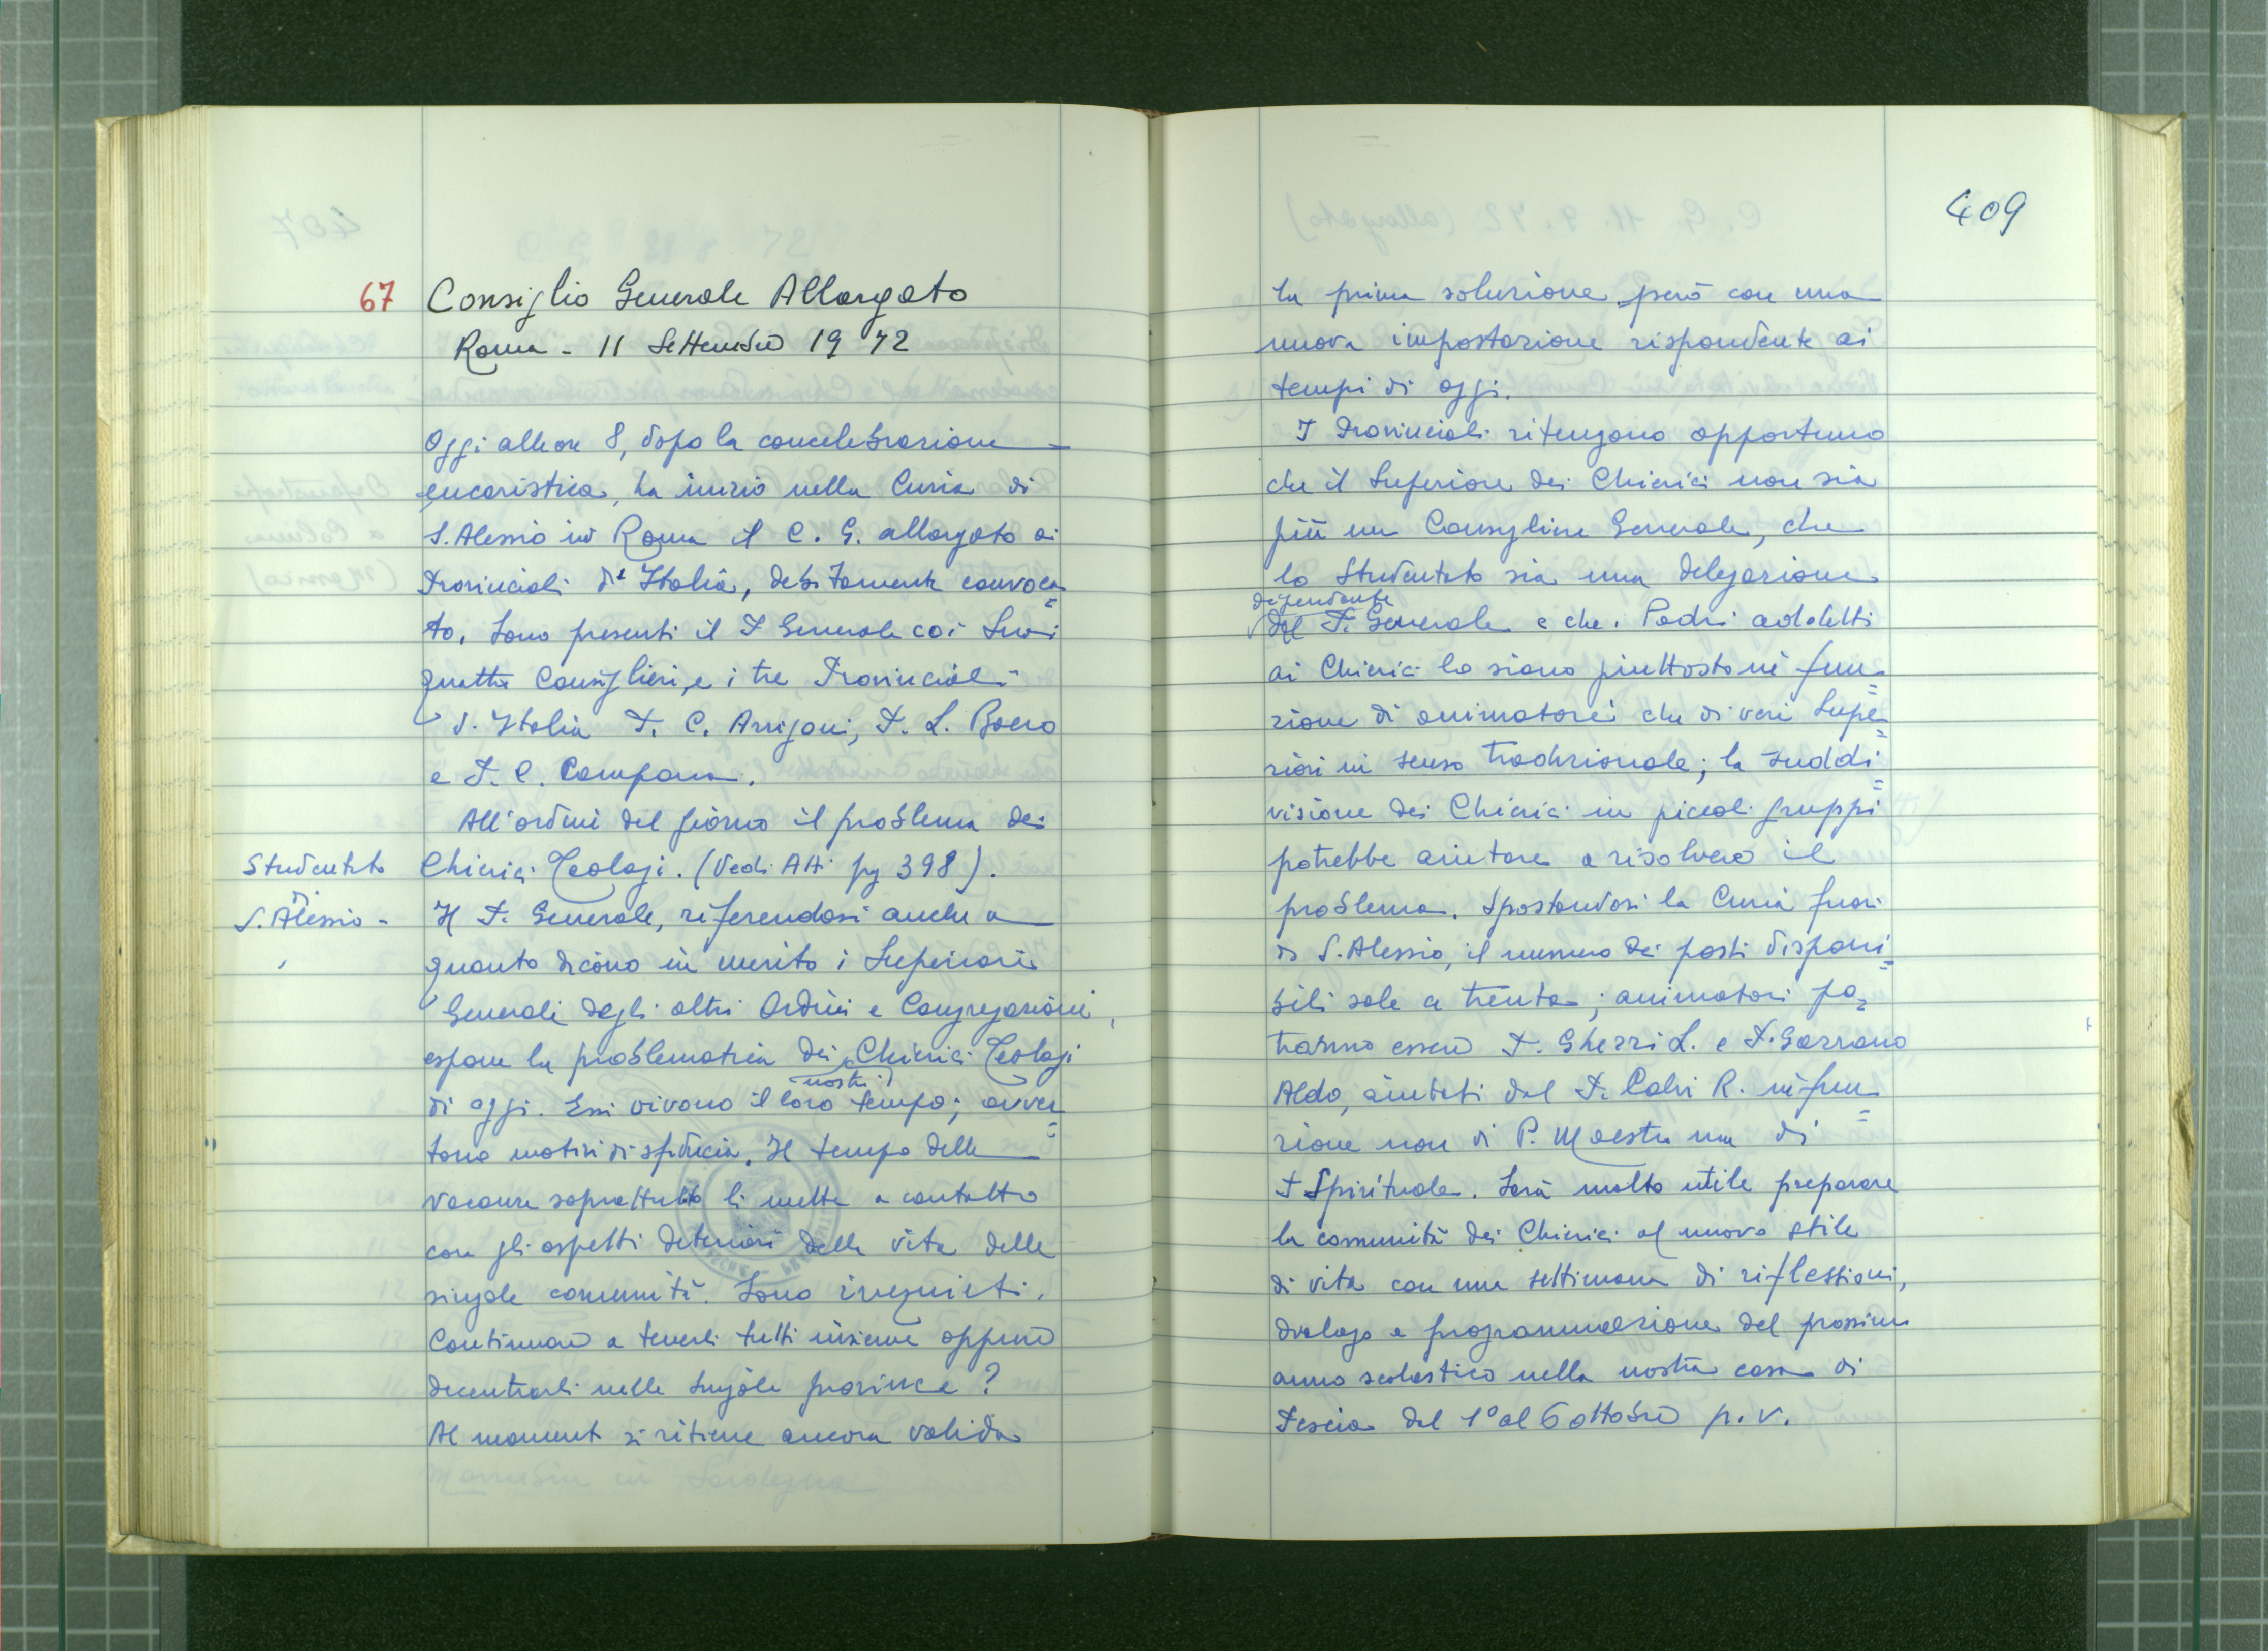 67 Consiglio Generale Allargato
Roma - 11 Settembre 1972
Oggi alle ore 8, dopo la concelebrazione
eucaristica, ha inizio nella Curia di
S. Alessio in Roma il C. G. allargato ai
Provinciali d'Italia, debitamente convoca=
to. Sono presenti il P Generale coi Suoi
quattro Consiglieri, e i tre Provinciali
d'Italia P. C. Arrigoni, P. L. Boero
e P. C. Campana.
All'ordine del giorno il problema dei
Studentato
di
S. Alessio -
Chierici Teologi. (Vedi Atti pg 398).
Il P. Generale, riferendosi anche a
quanto dicono in merito i Superiori
Generali degli altri Ordini e Congregazioni,
espone la problematica dei nostri Chierici Teologi
di oggi. Essi vivono il loro tempo; avver=
tono motivi di sfiducia. Il tempo delle
vacanze soprattutto li mette a contatto
con gli aspetti deteriori della vita delle
singole comunità. Sono irrequieti.
Continuare a tenerli tutti insieme oppure
decentrarli nelle singole province?
Al momento si ritiene ancora valida
409
la prima soluzione però con una
nuova impostazione rispondente ai
tempi di oggi.
I Provinciali ritengono opportuno
che il Superiore dei Chierici non sia
più un Consigliere Generale, che
lo Studentato sia una delegazione
dipendente
dal P. Generale e che i Padri addetti
ai Chierici lo siano piuttosto in fun=
zione di animatori che di veri Supe=
riori in senso tradizionale; la suddi=
visione dei Chierici in piccoli gruppi
potrebbe aiutare a risolvere il
problema. Spostandosi la Curia fuori
di S. Alessio, il numero dei posti disponi=
bili sale a trenta; animatori po=
tranno essere P. Ghezzi L. e P. Gazzano
Aldo, aiutati dal P. Calvi R. in fun=
zione non di P. Maestro ma di
P Spirituale. Sarà molto utile preparare
la comunità dei Chierici al nuovo stile
di vita con una settimana di riflessioni,
dialogo e programmazione del prossimo
anno scolastico nella nostra casa di
Pescia dal 1° al 6 ottobre p. v.